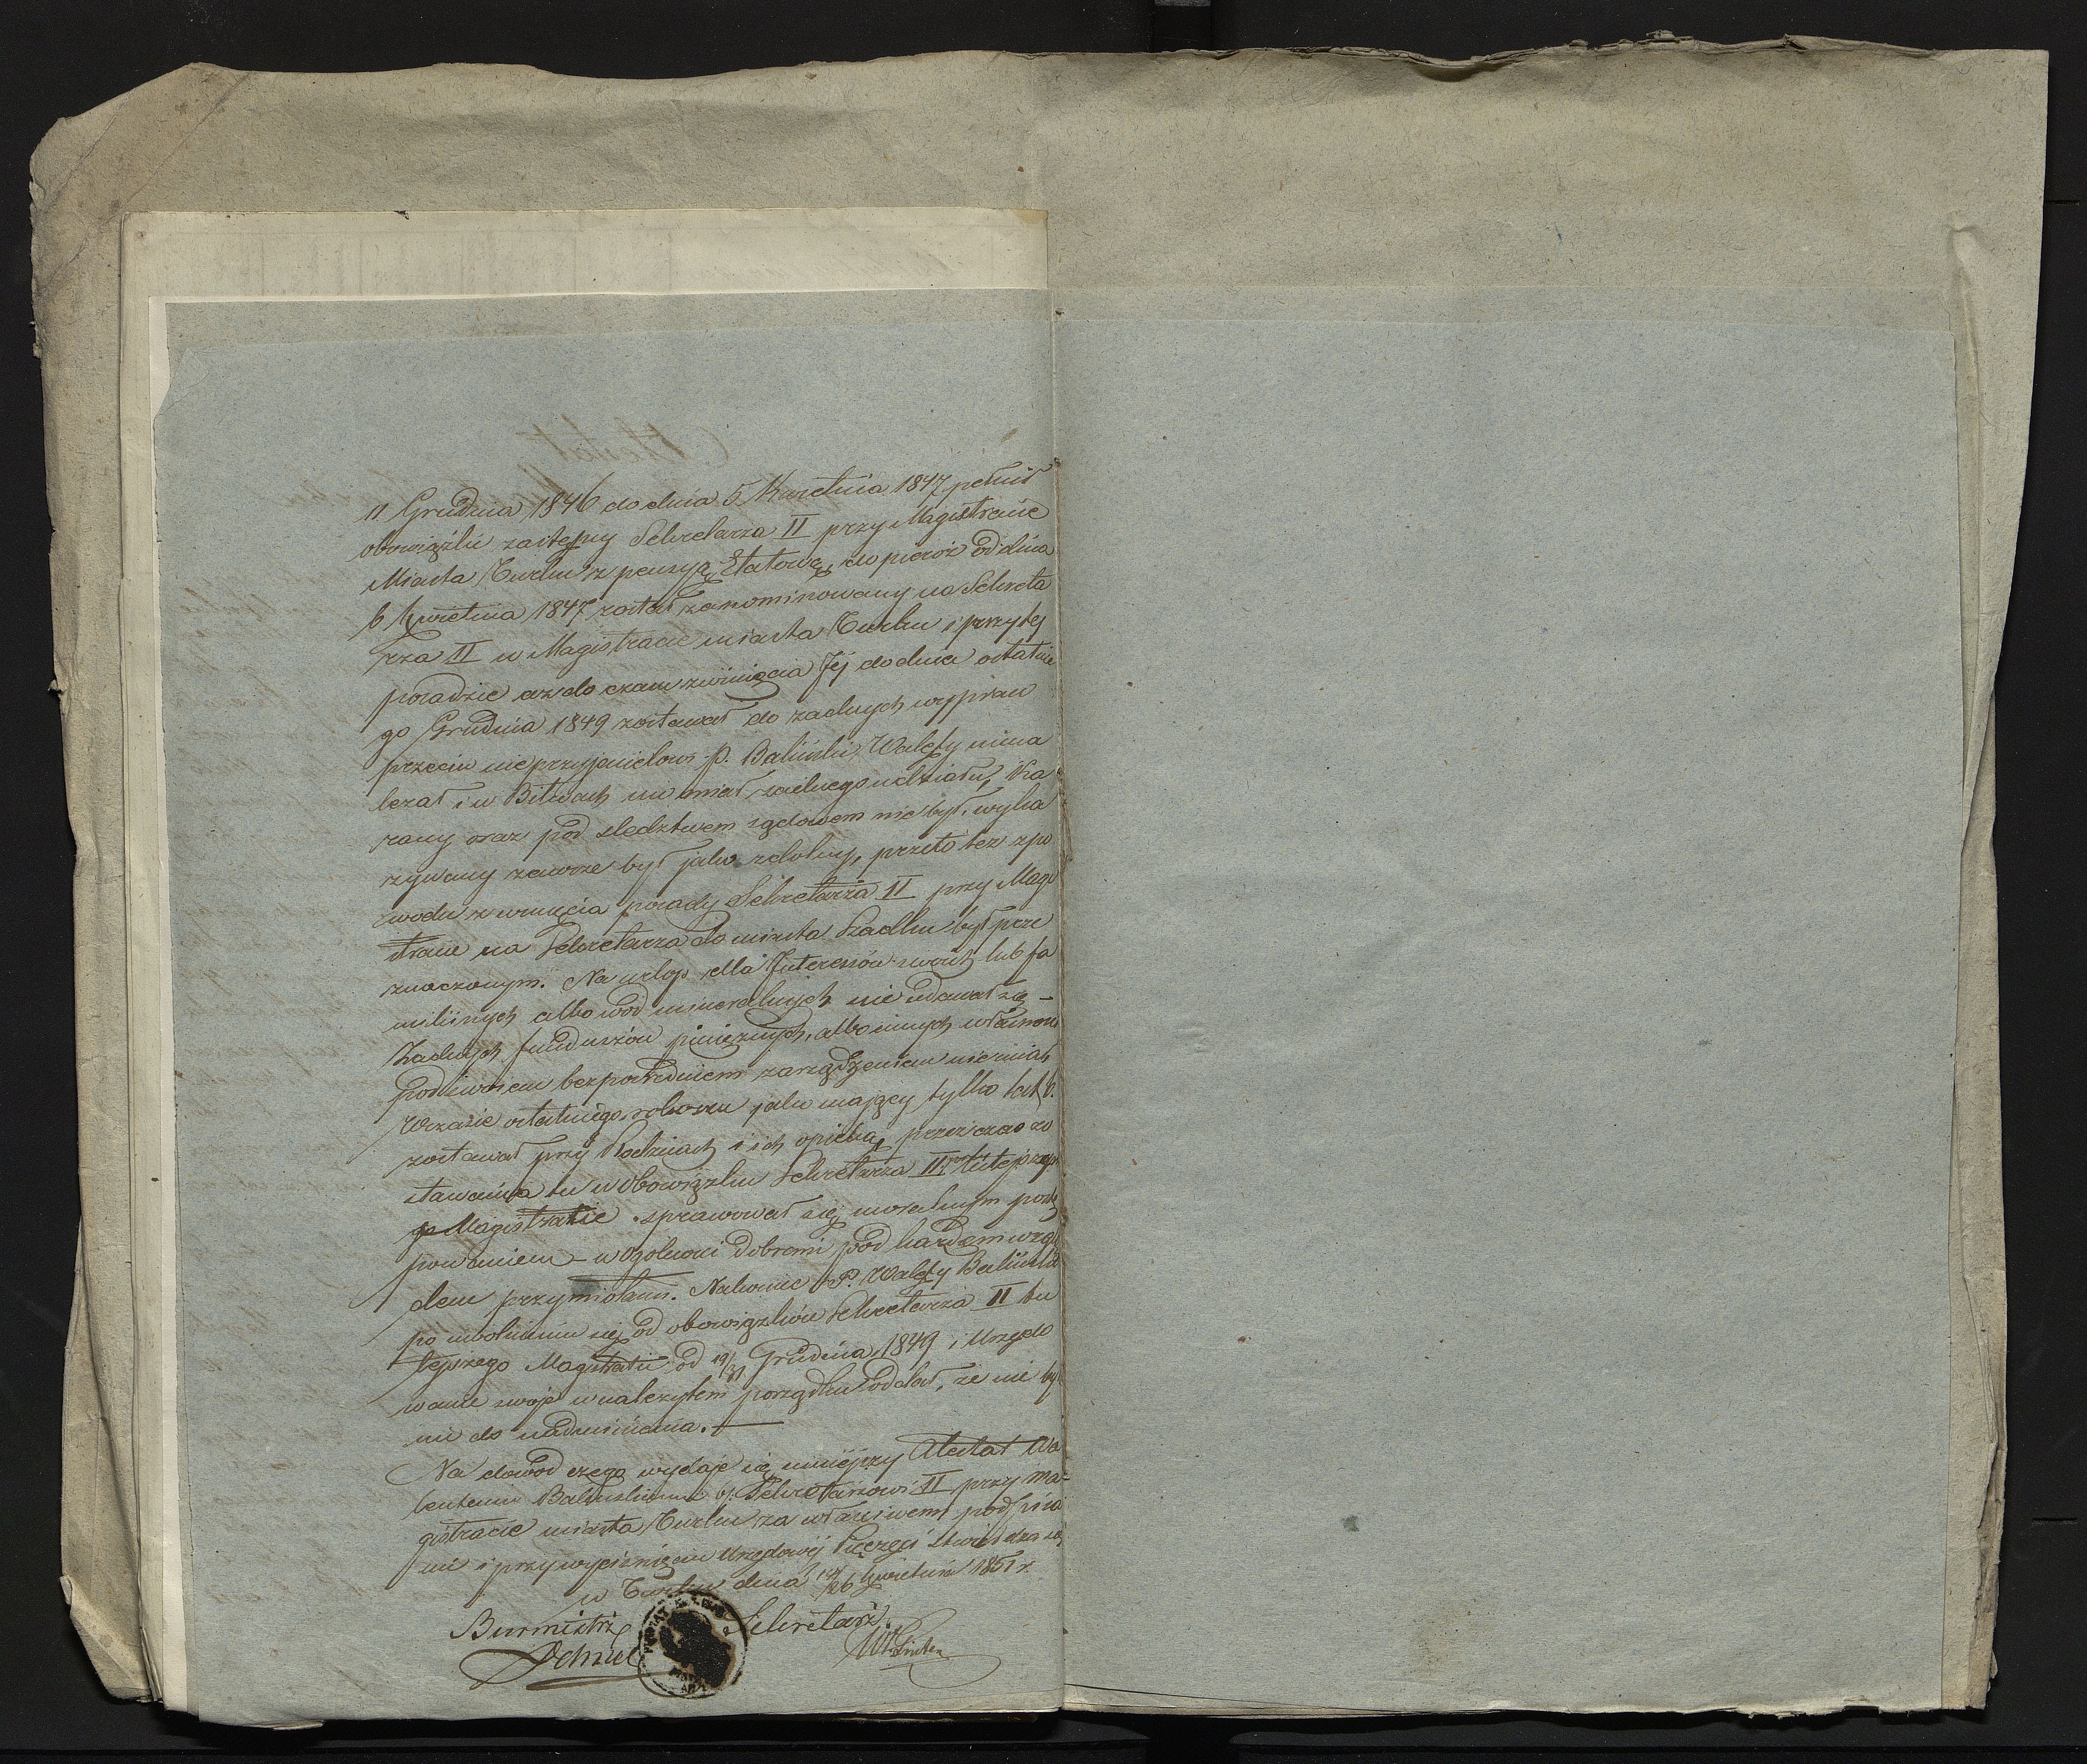 11 Grudnia 1846 do dnia 5 Kwietnia 1847 pełnił
obowiązki zastępcy Sekretarza II przy Magistracie
Miasta Turku z pensyą Etatową, dopieroż od dnia
6 Kwietnia 1847 został zanominowany na Sekreta
rza II w Magistracie miasta Turku i przy tej
posadzie aż do czasu zwinięcia Jej do dnia ostatnie
go Grudnia 1849 zostawał do żadnych wypraw
przeciw nieprzyjacielowi P. Baliński Walęty nima
leżał i w Bitwach nie miał żadnego udziału, Ka
rany oraz pod śledztwem sądowem nie był, wyka
zywany zawsze był jako zdolny, przeto też z po
wodu zwinięcia posady Sekretarza II przy Magi
stracie na Sekretarza do miasta Szadku był prze
znaczonym. Na urlop dla Interessów swoich lub fa
milijnych albo wód mineralnych nie udawał się –
Żadnych funduszów pieniężnych, albo innych własnoś
pod swoiem bezpośredniem zarządzeniem nie miał
W czasie ostatniego rokoszu jako mający tylko lat 6.
zostawał przy Rodzicach i ich opieką, przez czas zo
stawania tu w obowiązku Sekretarza II przy tutejszym
Magistratie sprawował się moralnym postę
powaniem – w ogolności dobremi pod każdem wzglę
dem przymiotami. Nakoniec P. Walęty Baliński
po uwolnieniu się od obowiązków Sekretarza II tu
tejszego Magistratu od 19/31 Grudnia 1849 i Urzędo
wanie swoje w należytem porządku oddał, że nie by
ni do nadmienienia. —
Na dowód czego wydaje się niniejszy Atestat Wa
lentemu Balińskiemu b. Sekretarzowi II przy Ma-
gistracie miasta Turku za własciwemi podpisa
mi i przy wyciśnięciu Urzędowej Pieczęci stwierdza się
w Turku dnia 14/26 Kwietnia 1851 r.
Burmistrz Sekretarz